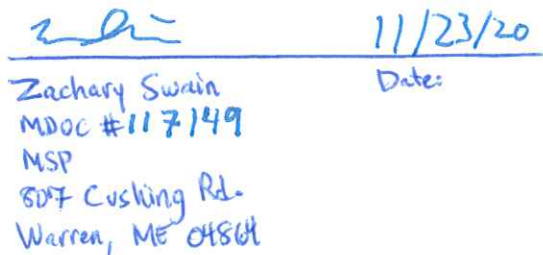 11/23/20
Zachary Swain Date:
MDOC #117149
MSP
807 Cushing Rd.
Warren, ME 04864